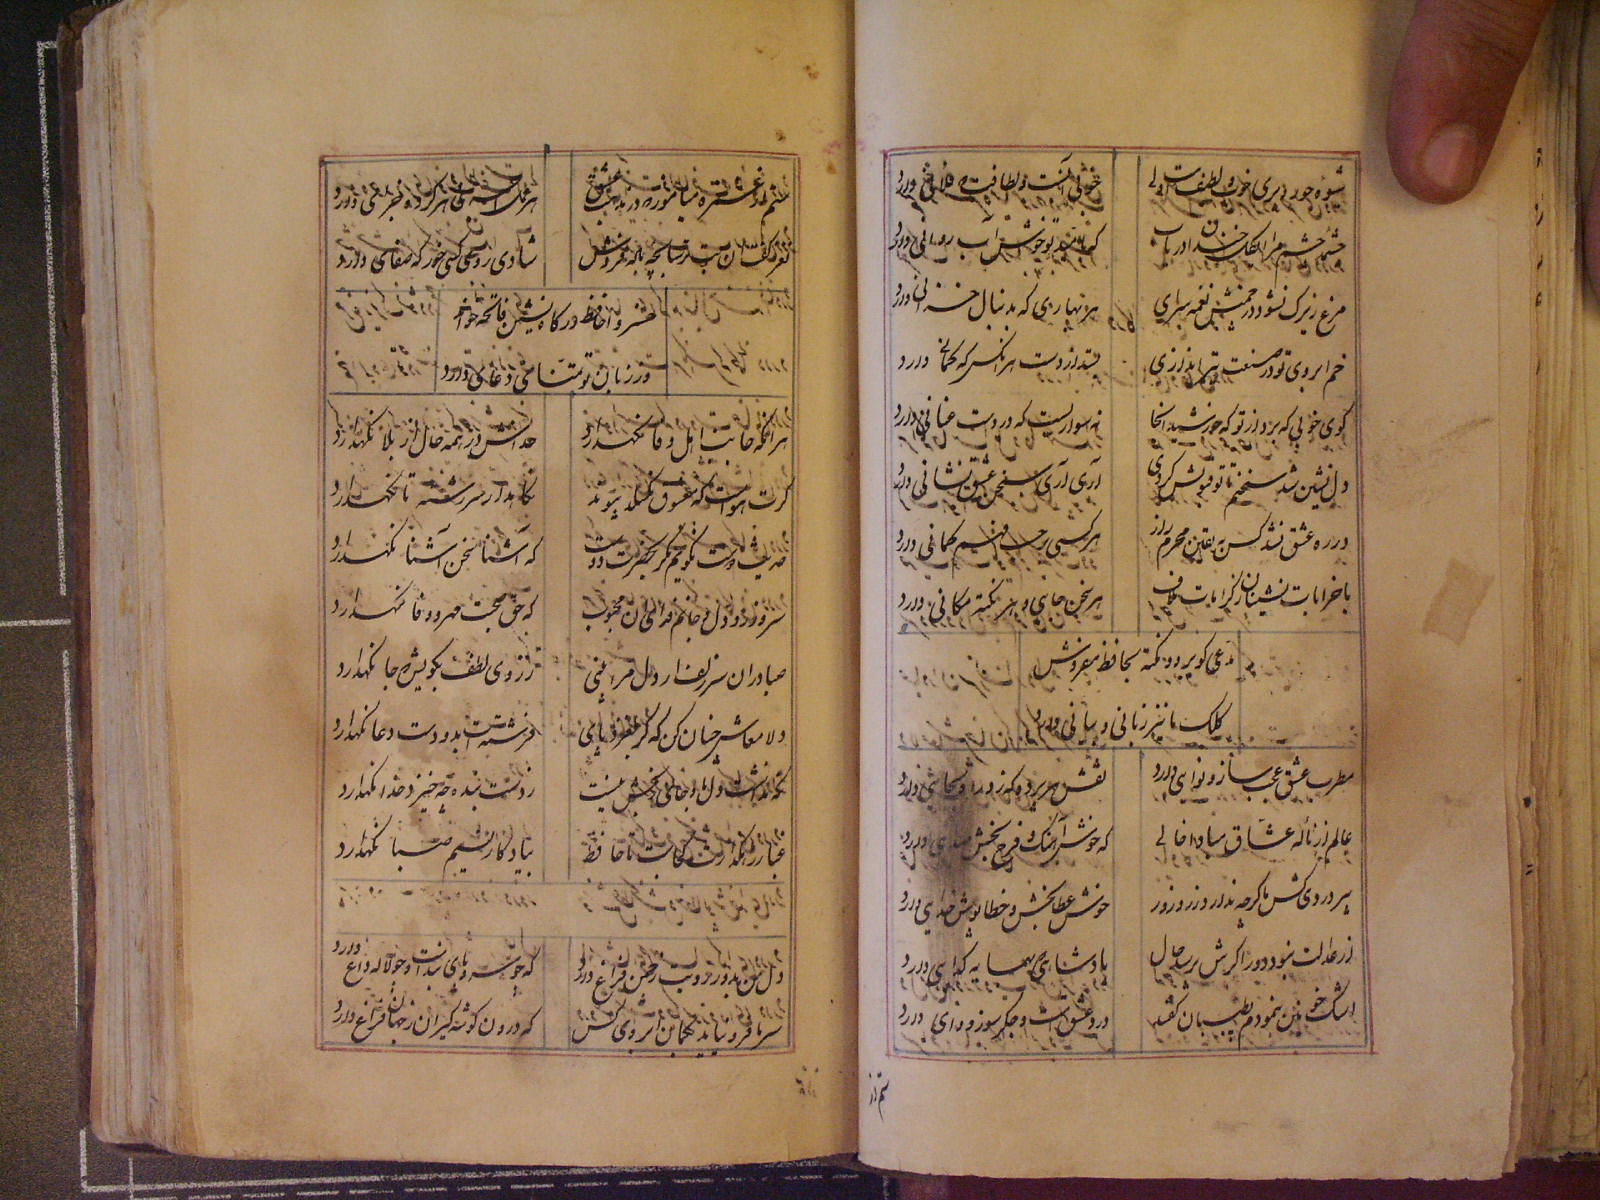 شیوه حور و پری خوب و لطیفست ولی خوبی آنست و لطافت که فلانی دارد
چشمه چشم مرا ای گل خندان دریاب که بامید تو خوش آب روانی دارد
مرغ زیرک نشود در چمنش نغمه سرای هر بهاری که بدنبال خزانی دارد
خم ابروی تو در صنعت تیر اندازی بستد از دست هر انکس که کمانی دارد
کوی خوبی که برد از تو که خورشید انجا نه سواریست که در دست عنانی دارد
دل نشین شد سخنم تا تو قبولش کردی آری آری سخن عشق نشانی دارد
در ره عشق نشد کس به یقین محرم راز هر کسی بر حسب فهم کمانی دارد
با خرابات نشینان ز کرامات ملاف هر سخن جایی و هر نکته مکانی دارد
مدعی کو برو و نکته بحافظ مفروش
کلک ما نیز زبانی و بیانی دارد
مطرب عشق عجب ساز و نوایی دارد نقش هر پرده که زد راه بجایی دارد
عالم از ناله عشاق مبادا خالی که خوش آهنگ و فرح بخش صدایی دارد
پیر دردی کش ما کرچه ندارد زر و زور خوش عطا بخش و خطا پوش خدایی دارد
از عدالت نبود دور اکرش پرسد حال پادشاهی که بهمسایه کدایی دارد
اشک خونین بنمودم بطبیبان گفتند درد عشق است و جگر سوز دوایی دارد
ستم از
ستم از غمزه میاموز که در مذهب عشق هر عمل اجری و هر کرده جزایی دارد
نغز گفت آن بت ترسا بچه باده فروش شادی روی کسی خور که صفایی دارد
خسروا حافظ درگاه نشین فاتحه خواند
وز زبان تو تمنای دعایی دارد
هر انکه جانب اهل وفا نکهدارد خداش در همه حال از بلا نکهدارد
گرت هواست که معشوق نکسلد پیوند نکاهدار سر رشته تا نکهدارد
حدیث دوست نگویم مگر بحضرت دوست که آشنا سخن آشنا نکهدارد
سر و زر و دل و جانم فدای آن محبوب که حق صحبت مهر و وفا نکهدارد
صبا در ان سر زلف ار دل مرا بینی ز روی لطف بگویش که جا نکهدارد
دلا معاش چنان کن که گر بلغزد پای فرشته ات بدو دست دعا نکهدارد
نگه نداشت دل ما و جای رنجش نیست ز دست بنده چه خیزد خدا نکهدارد
غبار راهگذارت کجاست تا حافظ بیادگار نسیم صبا نکهدارد
دل من بدور رویت ز چمن فراغ دارد که چو سرو پای بندست و چو لاله داغ دارد
سر ما فرو نیاید بکمان ابروی کس که درون گوشه گیران ز جهان فراغ دارد